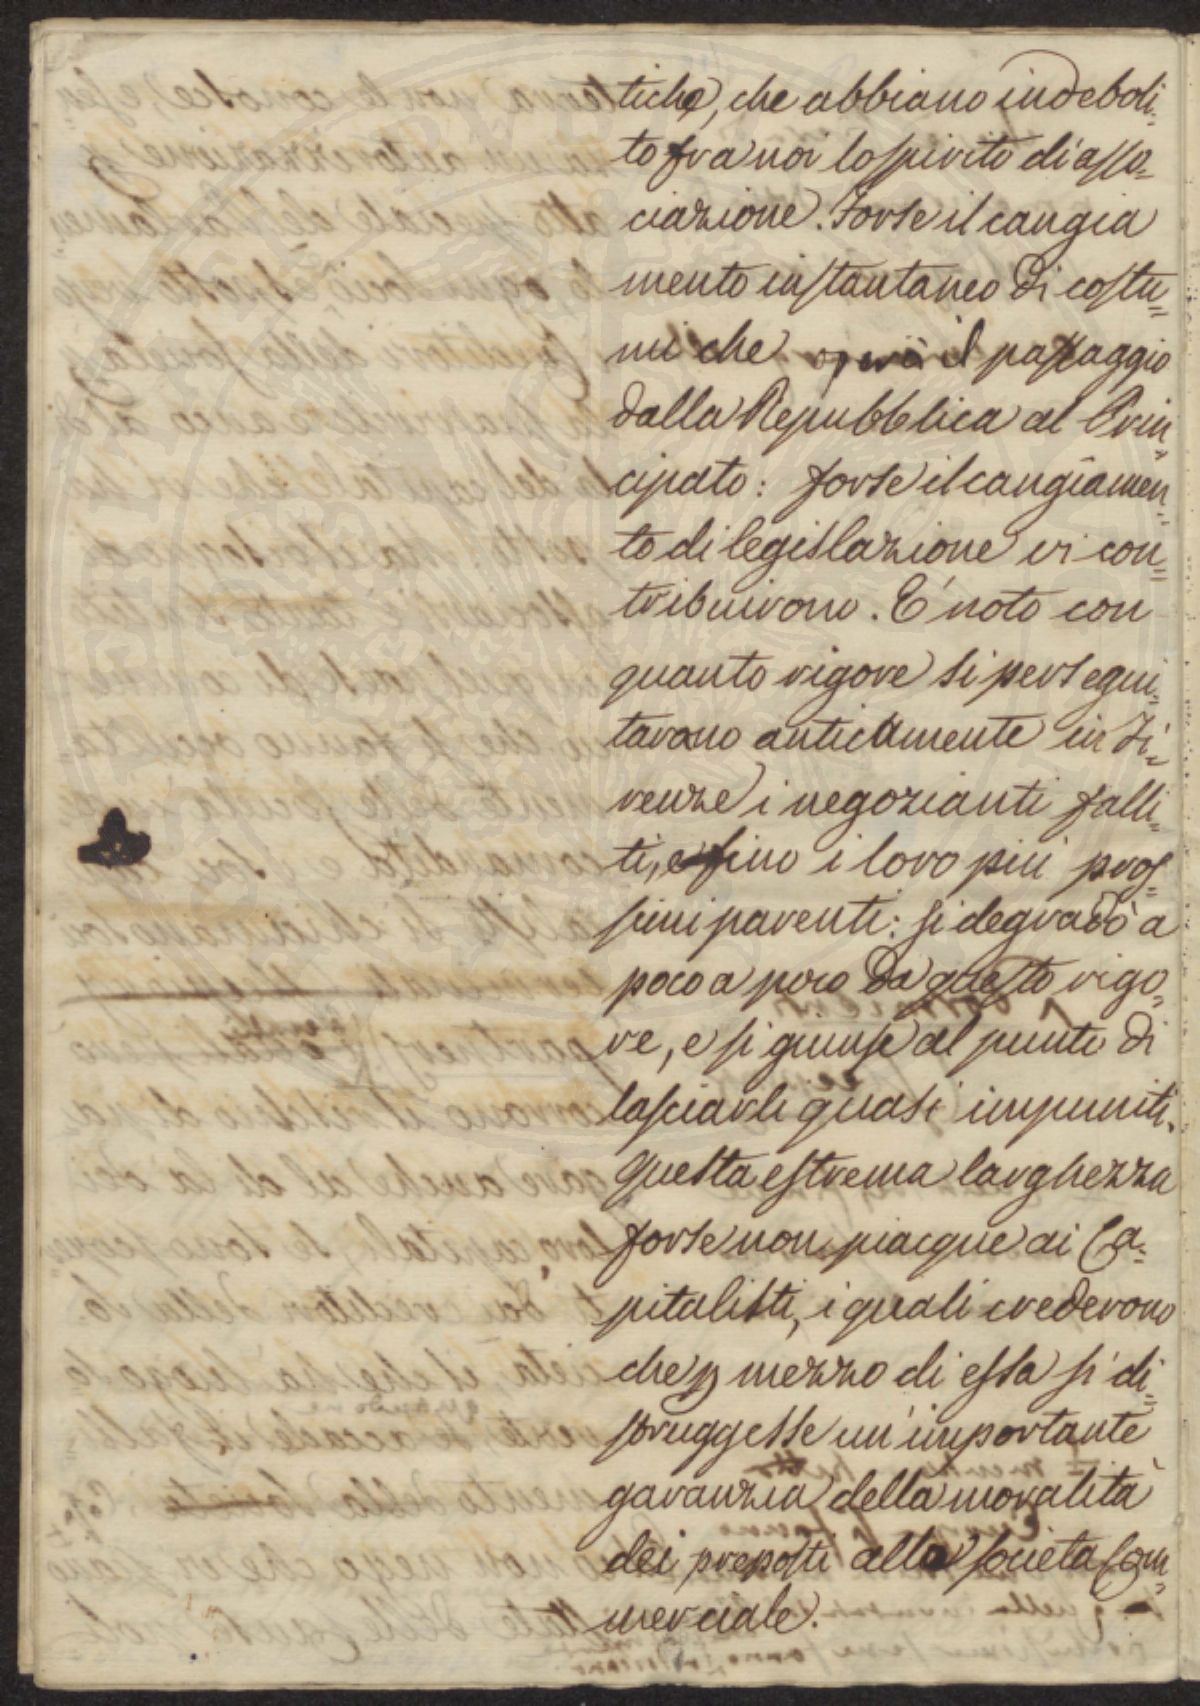 tiche, che abbiano indeboli-
to fra noi lo spirito di asso-
ciazione. Forse il cangia
mento instantaneo di costu=
mi che operò il passaggio
dalla Repubblica al Prin=
cipato: forse il cangiamen=
to di legislazione vi con=
tribuirono. E' noto con
quanto rigore si persegui=
tarono anticamente in Fi=
renze i negozianti falli=
ti, e fino i loro più pros=
simi parenti: si degradò a
poco a poco da questo rigo=
re, e si giunse al punto di
lasciarli quasi impuniti.
Questa estrema larghezza
forse non piacque ai Ca=
pitalisti, i quali crederono
che p mezzo di essa si di=
struggesse un'importante
garanzia della moralità
dei preposti alla società Com=
merciale.